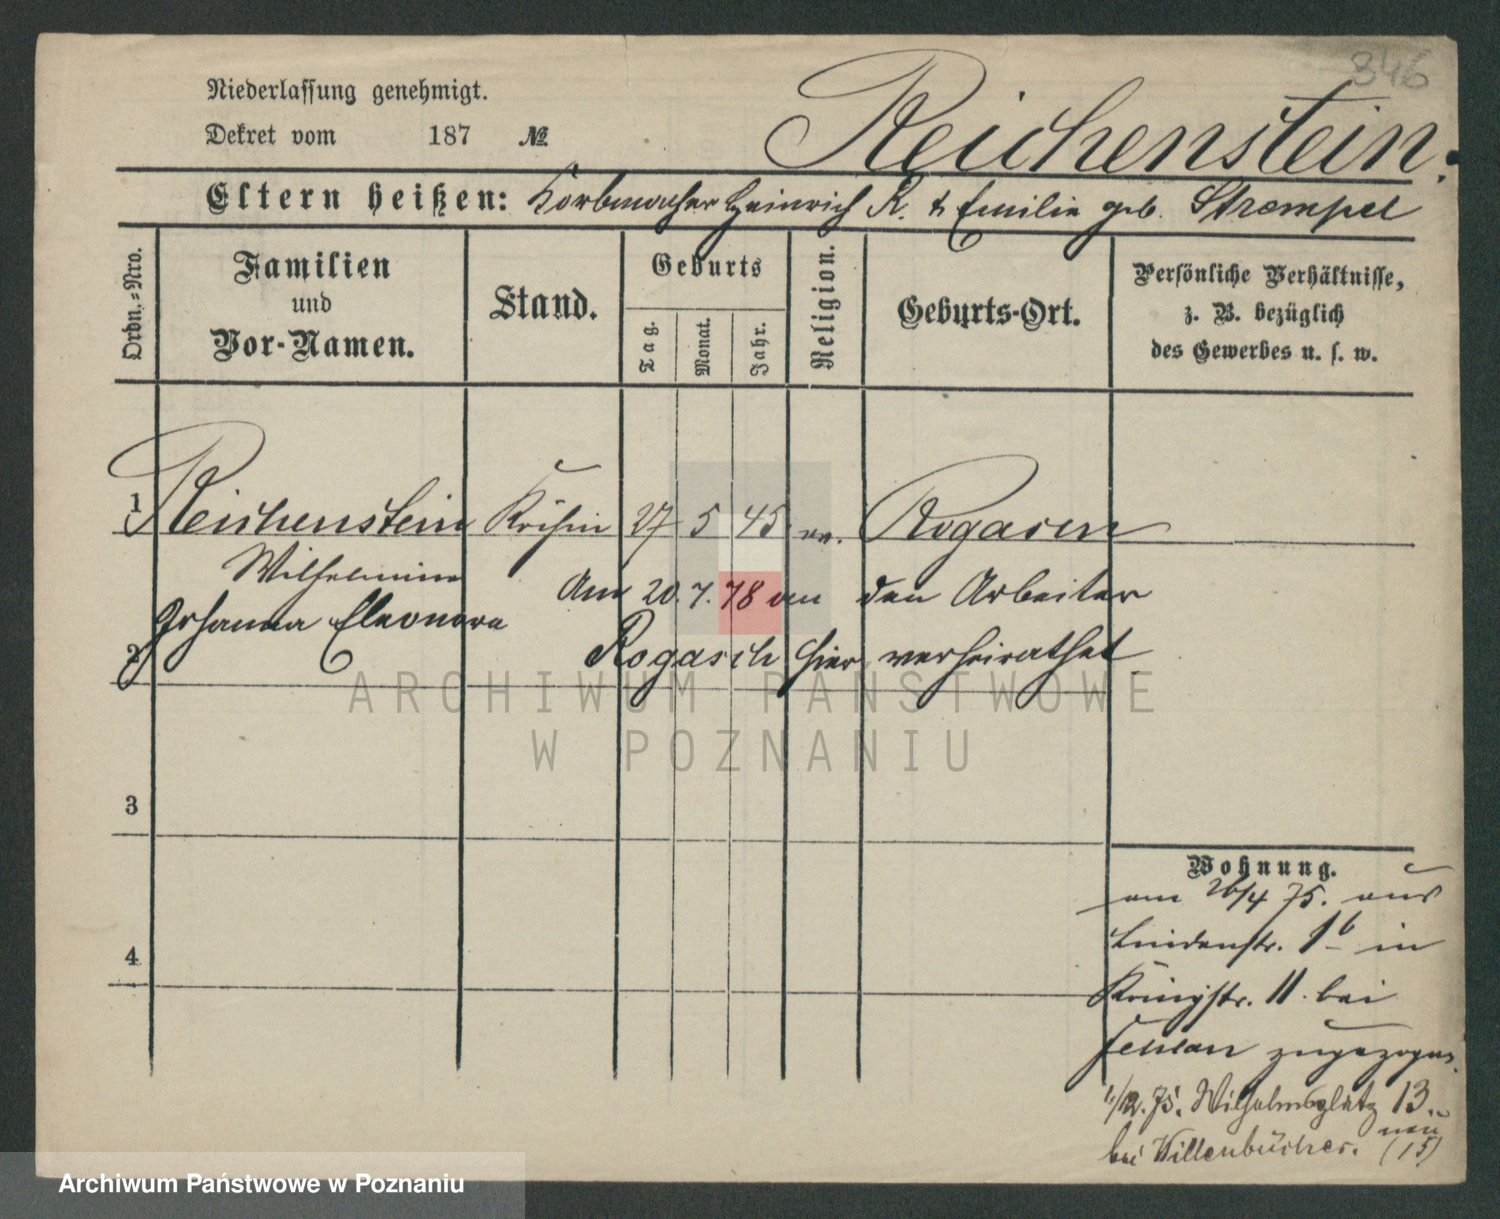 346
Niederlassung genehmigt.
Dekret vom 187 №
Reichenstein.
Eltern heißen: Korbmacher Heinrich R. & Emilie geb. Strempel
Ordn.-Nro.
Familien
und
Vor-Namen.
Stand.
Geburts
Tag.
Monat.
Jahr.
Religion.
Geburts-Ort.
Persönliche Verhältnisse,
z. B. bezüglich
des Gewerbes u. s. w.
1 Reichenstein Köchin 27 5 45 ev. Rogasen
Wilhelmine
Johanna Eleonore
Am 20. 7. 78 an den Arbeiter
2 Rogasch hier verheirathet
ARCHIWUM PAŃSTWOWE
W POZNANIU
3
4
Wohnung.
am 26/4 75. aus
Lindenstr. 1b in
Königstr. 11. bei
zugezogen.
1/12. 75. Wilhelmsplatz 13.
bei Willenbücher. neu (15)
Archiwum Państwowe w Poznaniu